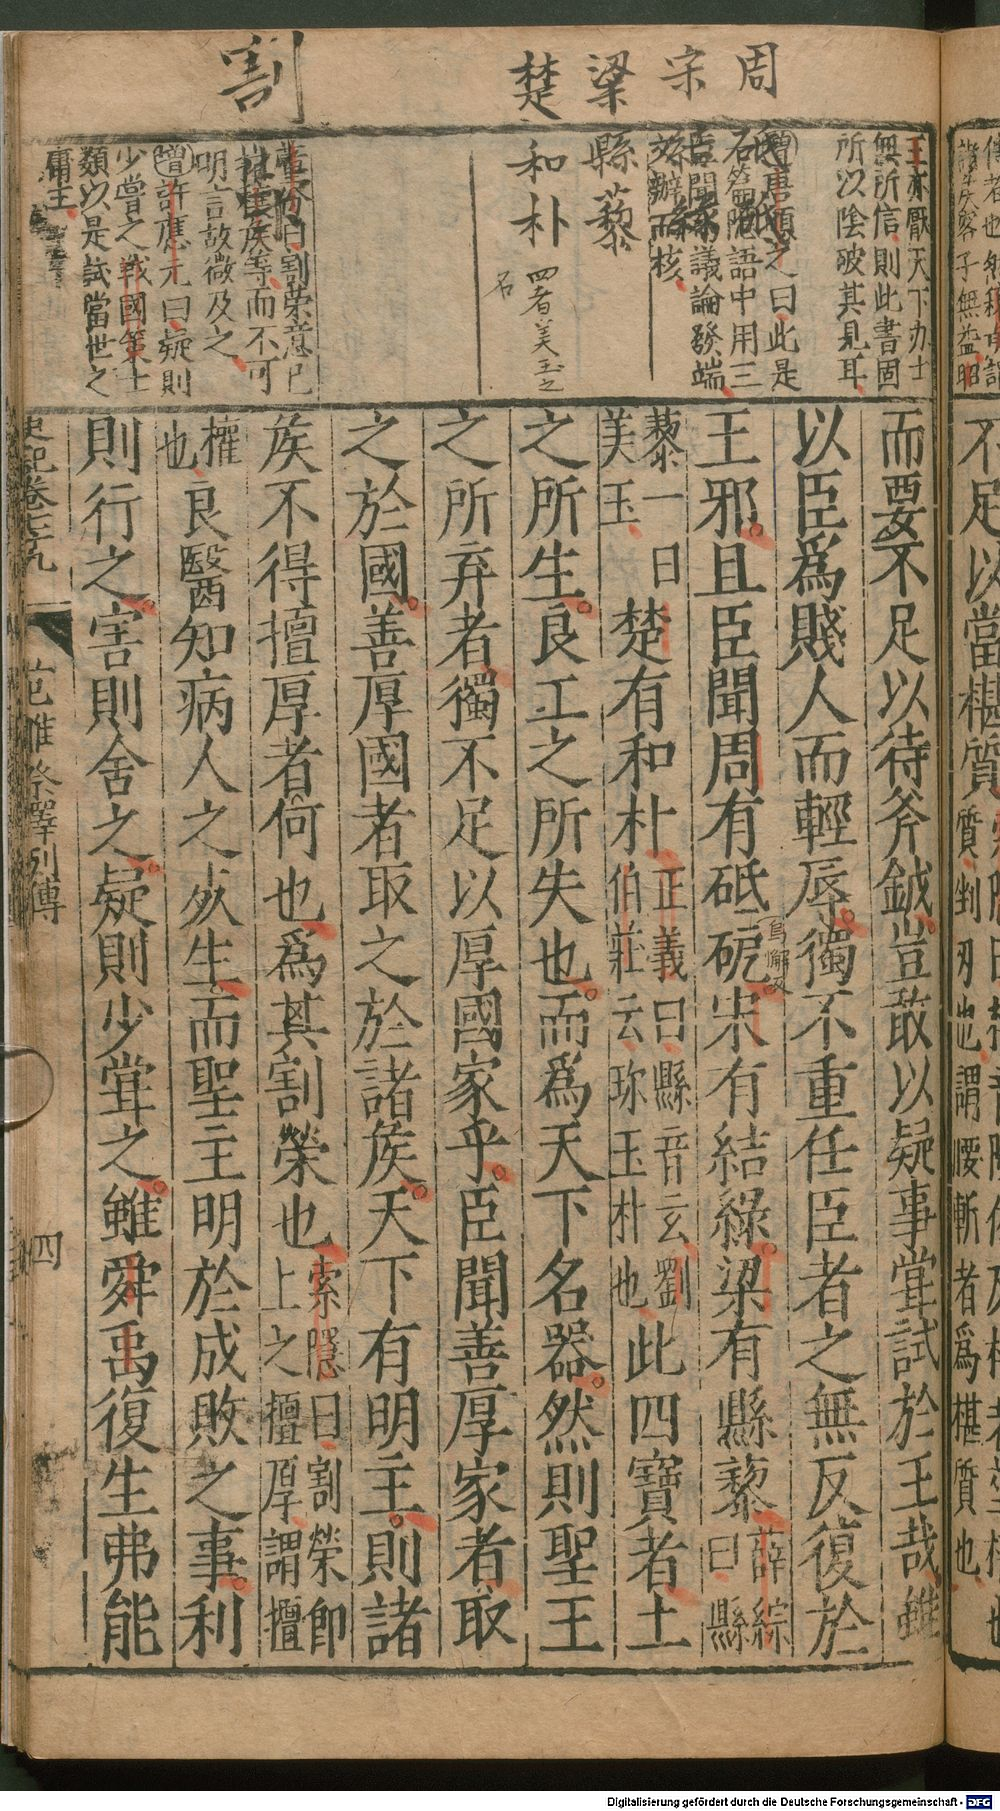 周
宋
梁
楚
割
王亦厭天下辨士
無所信則此書固
所以陰破其見耳
增唐順之曰此是
石篇陞語中用三
臣聞爲議論發端
文辨而核
縣藜
和朴
四者美玉之
名
董份曰割榮意已
擅矦等而不可
明言故微及之
增許應元曰疑則
少嘗之戰國策士
類以是試當世之
庸主
而要不足以待斧鉞豈敢以疑事嘗試於王哉雖
以臣爲賤人而輕辱獨不重任臣者之無反復於
王邪且臣聞周有砥砨宋有結綠梁有縣藜薛綜
曰縣
藜一曰
美玉
楚有和朴正義曰縣音玄劉
伯莊云珎玉朴也
此四寶者土
之所生良工之所失也而爲天下名器然則聖王
之所弃者獨不足以厚國家乎臣聞善厚家者取
之於國善厚國者取之於諸矦天下有明主則諸
矦不得擅厚者何也爲其割榮也索隱曰割榮即
上之擅厚謂擅
權
也
良醫知病人之死生而聖主明於成敗之事利
則行之害則舍之疑則少嘗之雖舜禹復生弗能
史記卷七十九
范雎蔡澤列傳
四
不足以當椹質
謂腰斬者爲椹質也
Digitalisierung gefördert durch die Deutsche Forschungsgemeinschaft - DFG